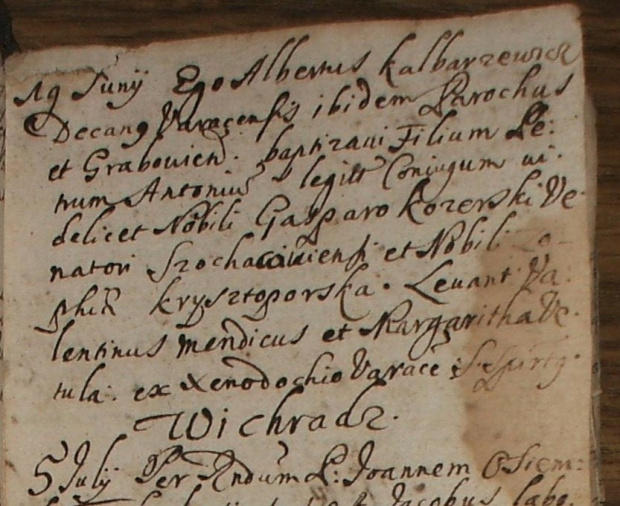 19 Junij Ego Albertus Kalbarzewicz
Decang Varacensis ibidem Parochus
et Graboviens: baptizavi Filium Pe:
trum Antoniū legitt Coniugum vi:
delicet Nobili Gasparo Kozerski Ve
natori Szochaciuiensi et Nobili Zo
phiæ Krysztoporska. Levant Va:
lentinus mendicus et Margaritha Ve:
tula: ex Xenodochio Varace:
Wichradz.
5 July Per Rndum P: Joannem Osiem:
Jacobus